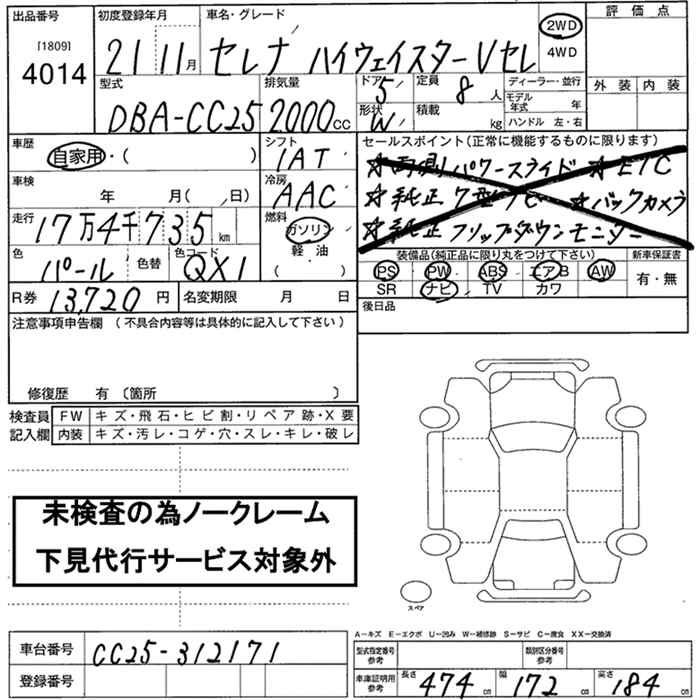 出品番号 初度登録年月 車名・グレード 2WD 評価点
[1809] 4014 21 11月 セレナ ハイウェイスターVセレ 4WD
型式 排気量 ドア 5 定員 8人 ディーラー・並行 外装 内装
DBA-CC25 2000cc 形状 W 積載 kg モデル年式 年 ハンドル 左・右
車歴 シフト セールスポイント(正常に機能するものに限ります)
自家用・( ) IAT ☆両側パワースライド ☆ETC
車検 冷房 ☆純正 ☆バックカメラ
年 月( 、日) AAC ☆純正フリップダウンモニター
走行 燃料
17万4千735km ガソリン 軽・油 ( )
色 色替 色コード 装備品(純正品に限り丸をつけて下さい) 新車保証書
パール QX1 PS PW ABS エアB AW 有・無
SR ナビ TV カワ
R券 13,720円 名変期限 月 日 後日品
注意事項申告欄 (不具合内容等は具体的に記入して下さい)
修復歴 有 〔箇所 〕
検査員記入欄 FW キズ・飛石・ヒビ割・リペア跡・X要
内装 キズ・汚レ・コゲ・穴・スレ・キレ・破レ
未検査の為ノークレーム
下見代行サービス対象外
スペア
A－キズ E－エクボ U－凹み W－補修跡 S－サビ C－腐食 XX－交換済
車台番号 CC25-312171 型式指定番号 参考 類別区分番号 参考
登録番号 車庫証明用 参考 長さ 474cm 幅 172cm 高さ 184cm